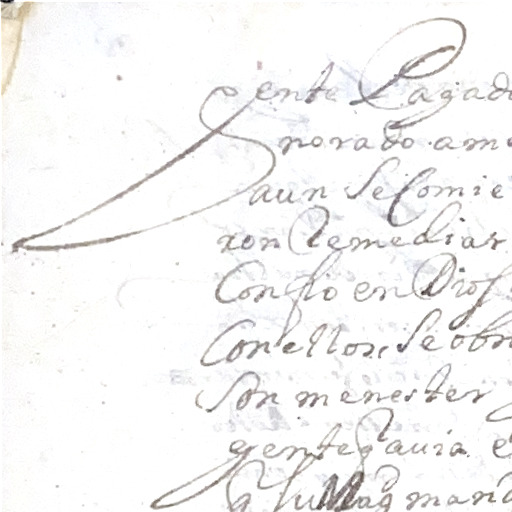 gente Pagado
norado ame
aun se Comie
ron Remediar
Confio en Dios
Con ellos, se obr
son menester
gente q avia e
q su Magd man